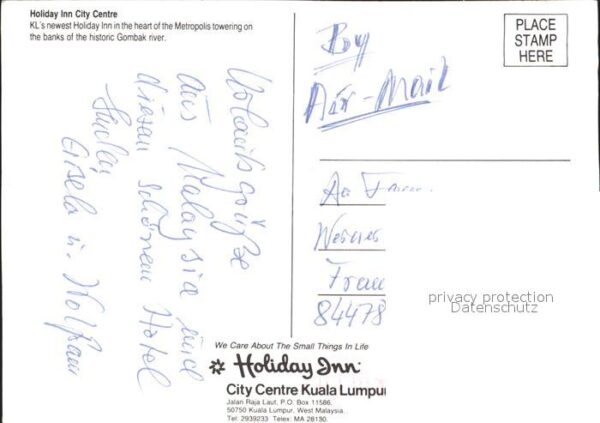 Holiday Inn City Centre
KL's newest Holiday Inn in the heart of the Metropolis towering on
the banks of the historic Gombak river.
PLACE
STAMP
HERE
By
Air-Mail
Urlaubsgrüße
aus Malaysia und
diesem schönen Hotel
senden
Gisela u. Wolfgang
An
Werner
84478
privacy protection
Datenschutz
We Care About The Small Things In Life
Holiday Inn
City Centre Kuala Lumpu
Jalan Raja Laut, P.O. Box 11586,
50750 Kuala Lumpur, West Malaysia.
Tel: 2939233 Telex: MA 28130.